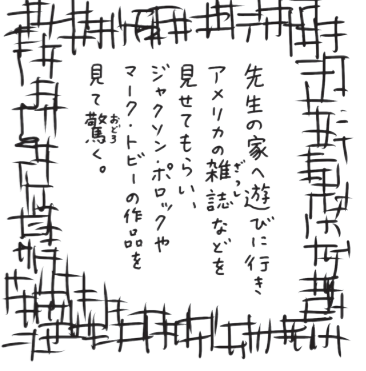 先生の家へ遊びに行き
アメリカの雑誌などを
見せてもらい、
ジャクソン・ポロックや
マーク・トビーの作品を
見て驚く。